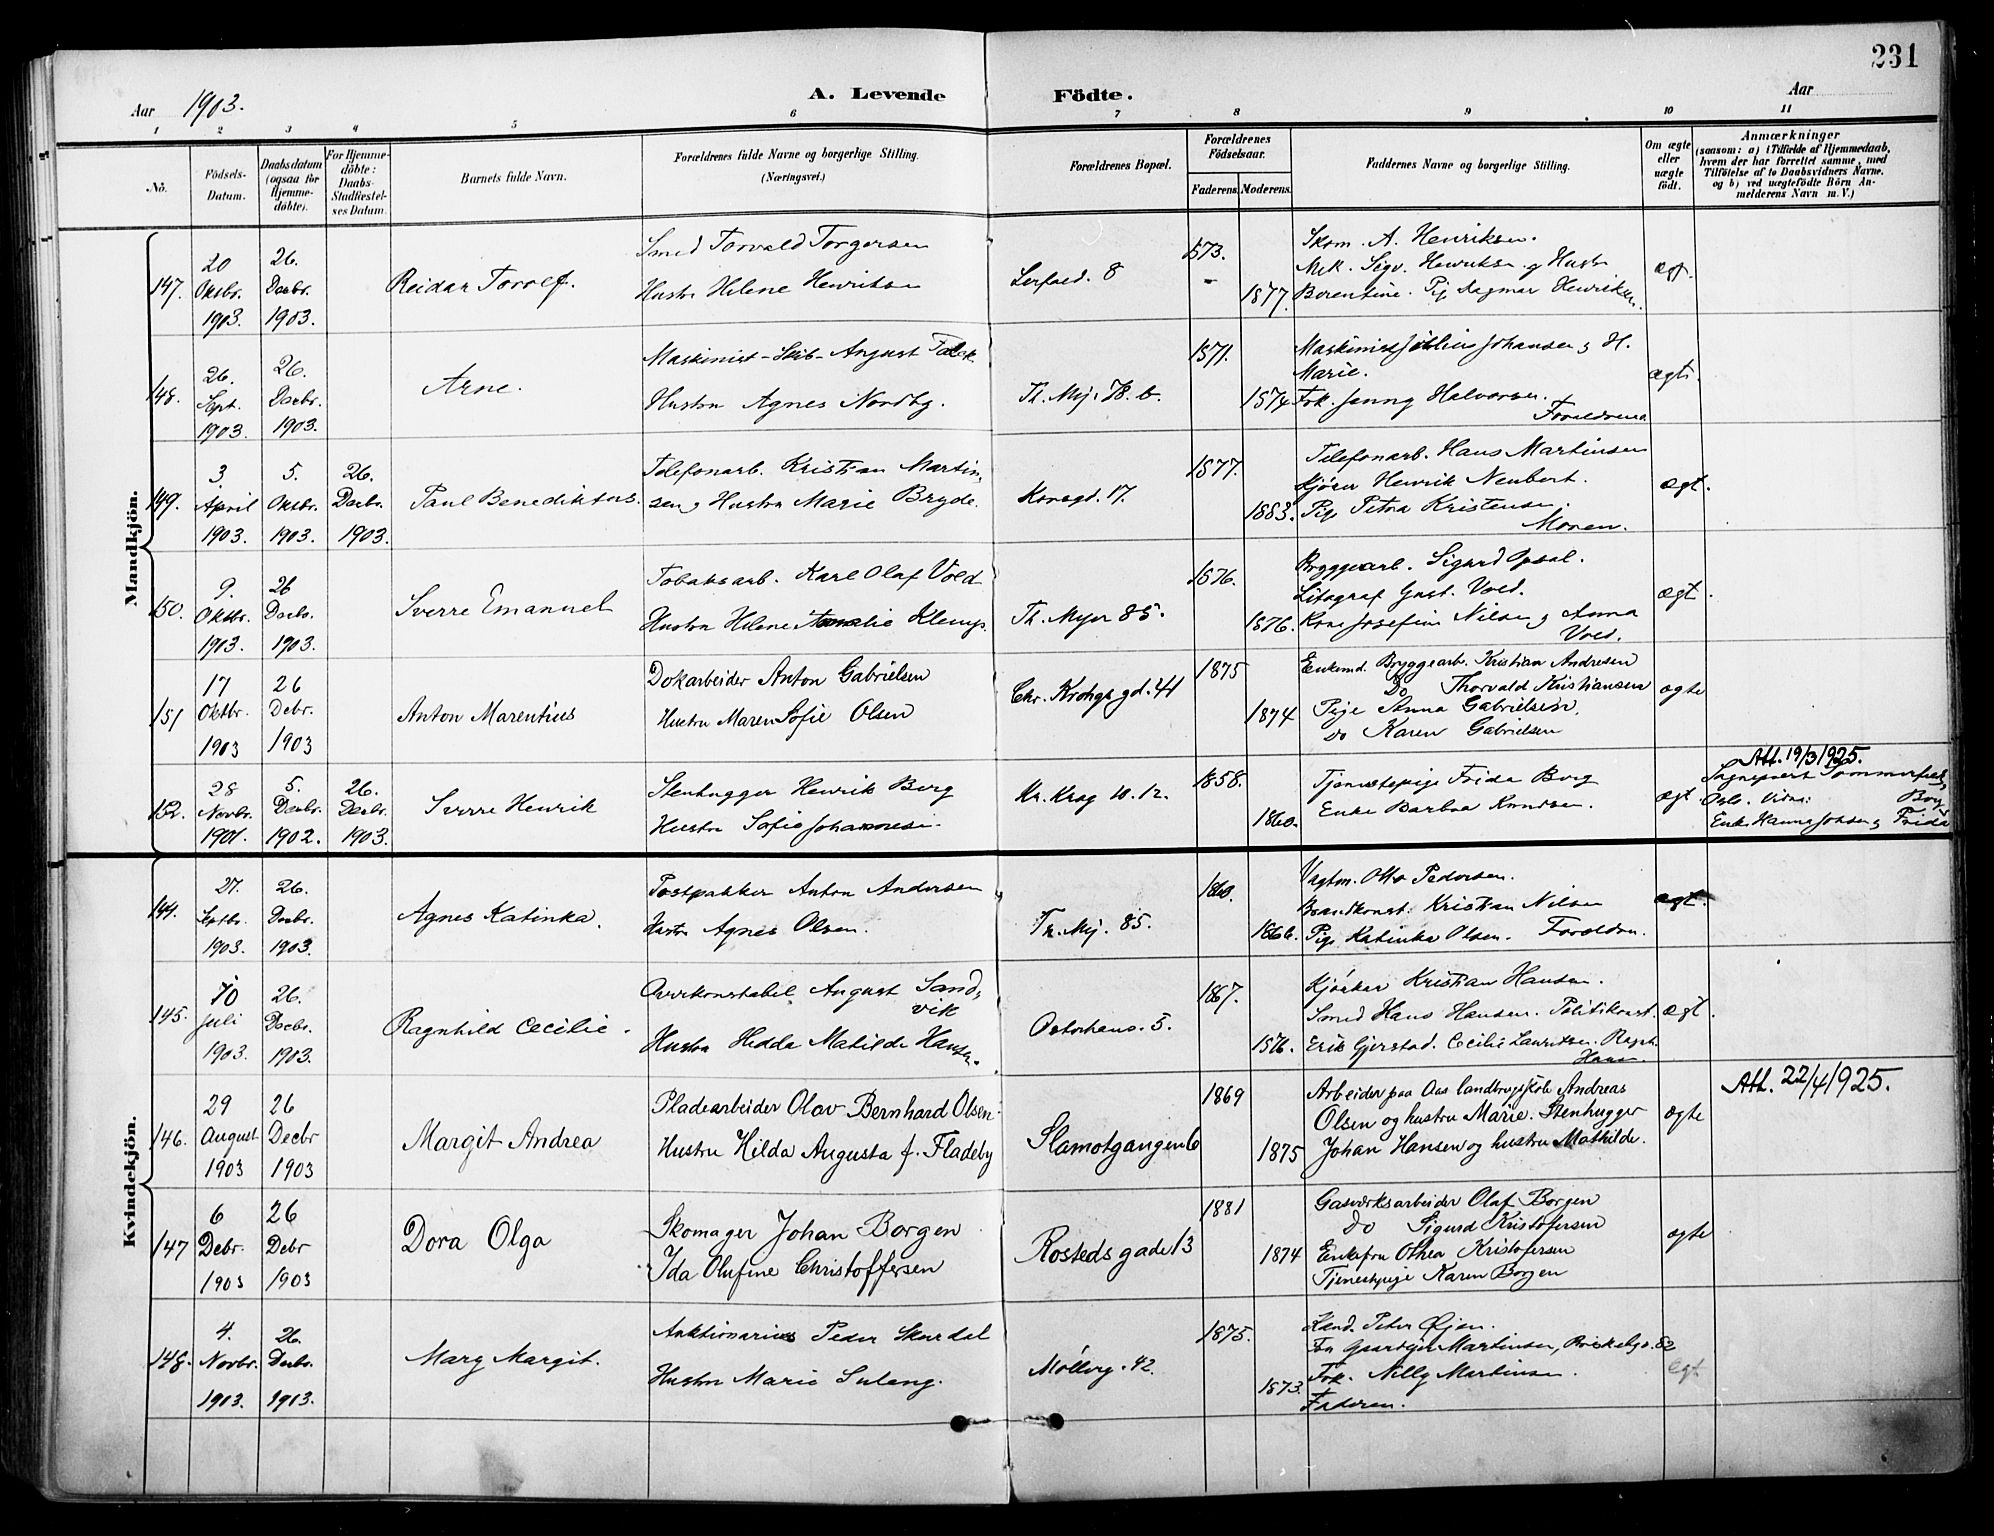 231
Aar 1903.
A. Levende Födte.
Aar
1 2 3 4 5 6 7 8 9 10 11
No.
Födsels-Datum.
Daabsdatum (ogsaa for Hjemme-döbte).
For Hjemme-döbte: Daabs-Stadfæstel-ses Datum.
Barnets fulde Navn.
Forældrenes fulde Navne og borgerlige Stilling.
(Næringsvei.)
Forældrenes Bopæl.
Forældrenes Födselsaar.
Faderens. Moderens.
Faddernes Navne og borgerlige Stilling.
Om ægte eller uægte födt.
Anmærkninger
(saasom: a) i Tilfælde af Hjemmedaab,
hvem der har forrettet samme, med
Tilföielse af to Daabsvidners Navne.
og b) ved uægtefödte Börn An-
melderens Navn m. V.)
Mandkjön.
147. 20 Oktbr. 1903. 26. Decbr. 1903.
Reidar Torolf.
Smed Torvald Torgersen
Hustru Helene Henriksen
8
1873.
1877.
Skom. A. Henriksen.
Mek. Sigv. Henriksen og Hustr
Berentine. Pige Dagmar Henriksen.
ægt.
148. 26. Sept. 1903. 26. Decbr. 1903.
Arne.
Maskinist - Skib - August Falck
Hustru Agnes Nordby.
Th. Mej. 78. b.
1871.
1874
Maskinist Julius Johansen og H.
Marie.
Frk. Jenny Halvorsen.
Forældrene
ægt.
149. 3. April 1903. 5. Oktbr. 1903. 26. Decbr. 1903.
Paul Benediktus.
Telefonarb. Kristian Martin-
sen og Hustru Marie Bryde.
Korsgd. 17.
1877.
1883.
Telefonarb. Hans Martinsen
Kjörer Henrik Neubert.
Pige Petra Kristensen.
Moren.
ægt.
150. 9. Oktbr. 1903. 26 Decbr. 1903.
Sverre Emanuel
Tobaksarb. Karl Olaf Vold
Hustru Helene Amalie
Th. Meyer 85.
1876.
1876.
Bryggearb. Sigurd Opsal.
Litograf Gust. Vold.
Kone Josefine Nilsen og Anna
Vold.
ægt.
151 17 Oktbr. 1903 26 Debr. 1903
Anton Marentius
Dokarbeider Anton Gabrielsen
Hustru Maren Sofie Olsen
Chr. Krohgs gd. 41
1875
1874
Enkemd. Bryggearb. Kristian Andresen
Do Thorvald Kristiansen
Pige Anna Gabrielsen.
Do Karen Gabrielsen
ægte
152. 28 Novbr. 1901. 5. Decbr. 1902. 26. Decbr. 1903.
Sverre Henrik
Stenhugger Henrik Berg
Hustru Sofie Johannesen
Kr. Krog 10. 12.
1858.
1860.
Tjenestepige Frida Berg
Enke Barbra Knudsen.
ægt
Att. 19/3 1925.
Sognepræst Sommerfelt,
Oslo. Vidne: Berg
Enke Hanna Johsen og Frida
Kvindekjön.
144. 27. Sptbr. 1903. 26. Decbr. 1903.
Agnes Katinka.
Postpakker Anton Andersen
Hustr Agnes Olsen.
Th. Mej. 85.
1860.
1866.
Vagtm. Otto Pedersen.
Brandkonst. Kristian Nilsen
Pige Katinka Olsen. Foreldren.
ægt.
145. 10 Juli 1903. 26. Decbr. 1903.
Ragnhild Cecilie.
Overkonstabel August Sand-
vik
Hustru Hedda Matilde Hansen.
Osterhaus. 5.
1867.
1876.
Kjörer Kristian Hansen.
Smed Hans Hansen. Politikonst.
Erik Gjerstad. Cecilie Lauritsen. Ragnh.
Hansen.
ægt.
146. 29 August 1903 26 Decbr 1903
Margit Andrea
Pladearbeider Olav Bernhard Olsen
Hustru Hilda Augusta f. Fladeby
Slamotgangen 6
1869
1875
Arbeider paa Aas landbrugsskole Andreas
Olsen og hustru Marie. Stenhugger
Johan Hansen og hustru Mathilde.
ægte
Att. 22/4 1925.
147 6 Debr. 1903 26 Debr 1903
Dora Olga
Skomager Johan Borgen
Ida Olufine Christoffersen
Rosteds gade 13
1881
1874
Gasværksarbeider Olaf Borgen
Do Sigurd Kristofersen
Enkefru Othea Kristofersen
Tjenestepige Karen Borgen
ægte
148. 4. Novbr. 1903. 26. Decbr. 1903.
Mary Margit.
Auktionarius Peder Skardal
Hustru Marie Suleng.
Möllerg. 42.
1875.
1873.
Kand. Peter Øjen.
Martinsen, 82
Frk. Nilly Martinsen
Faderen.
Egt